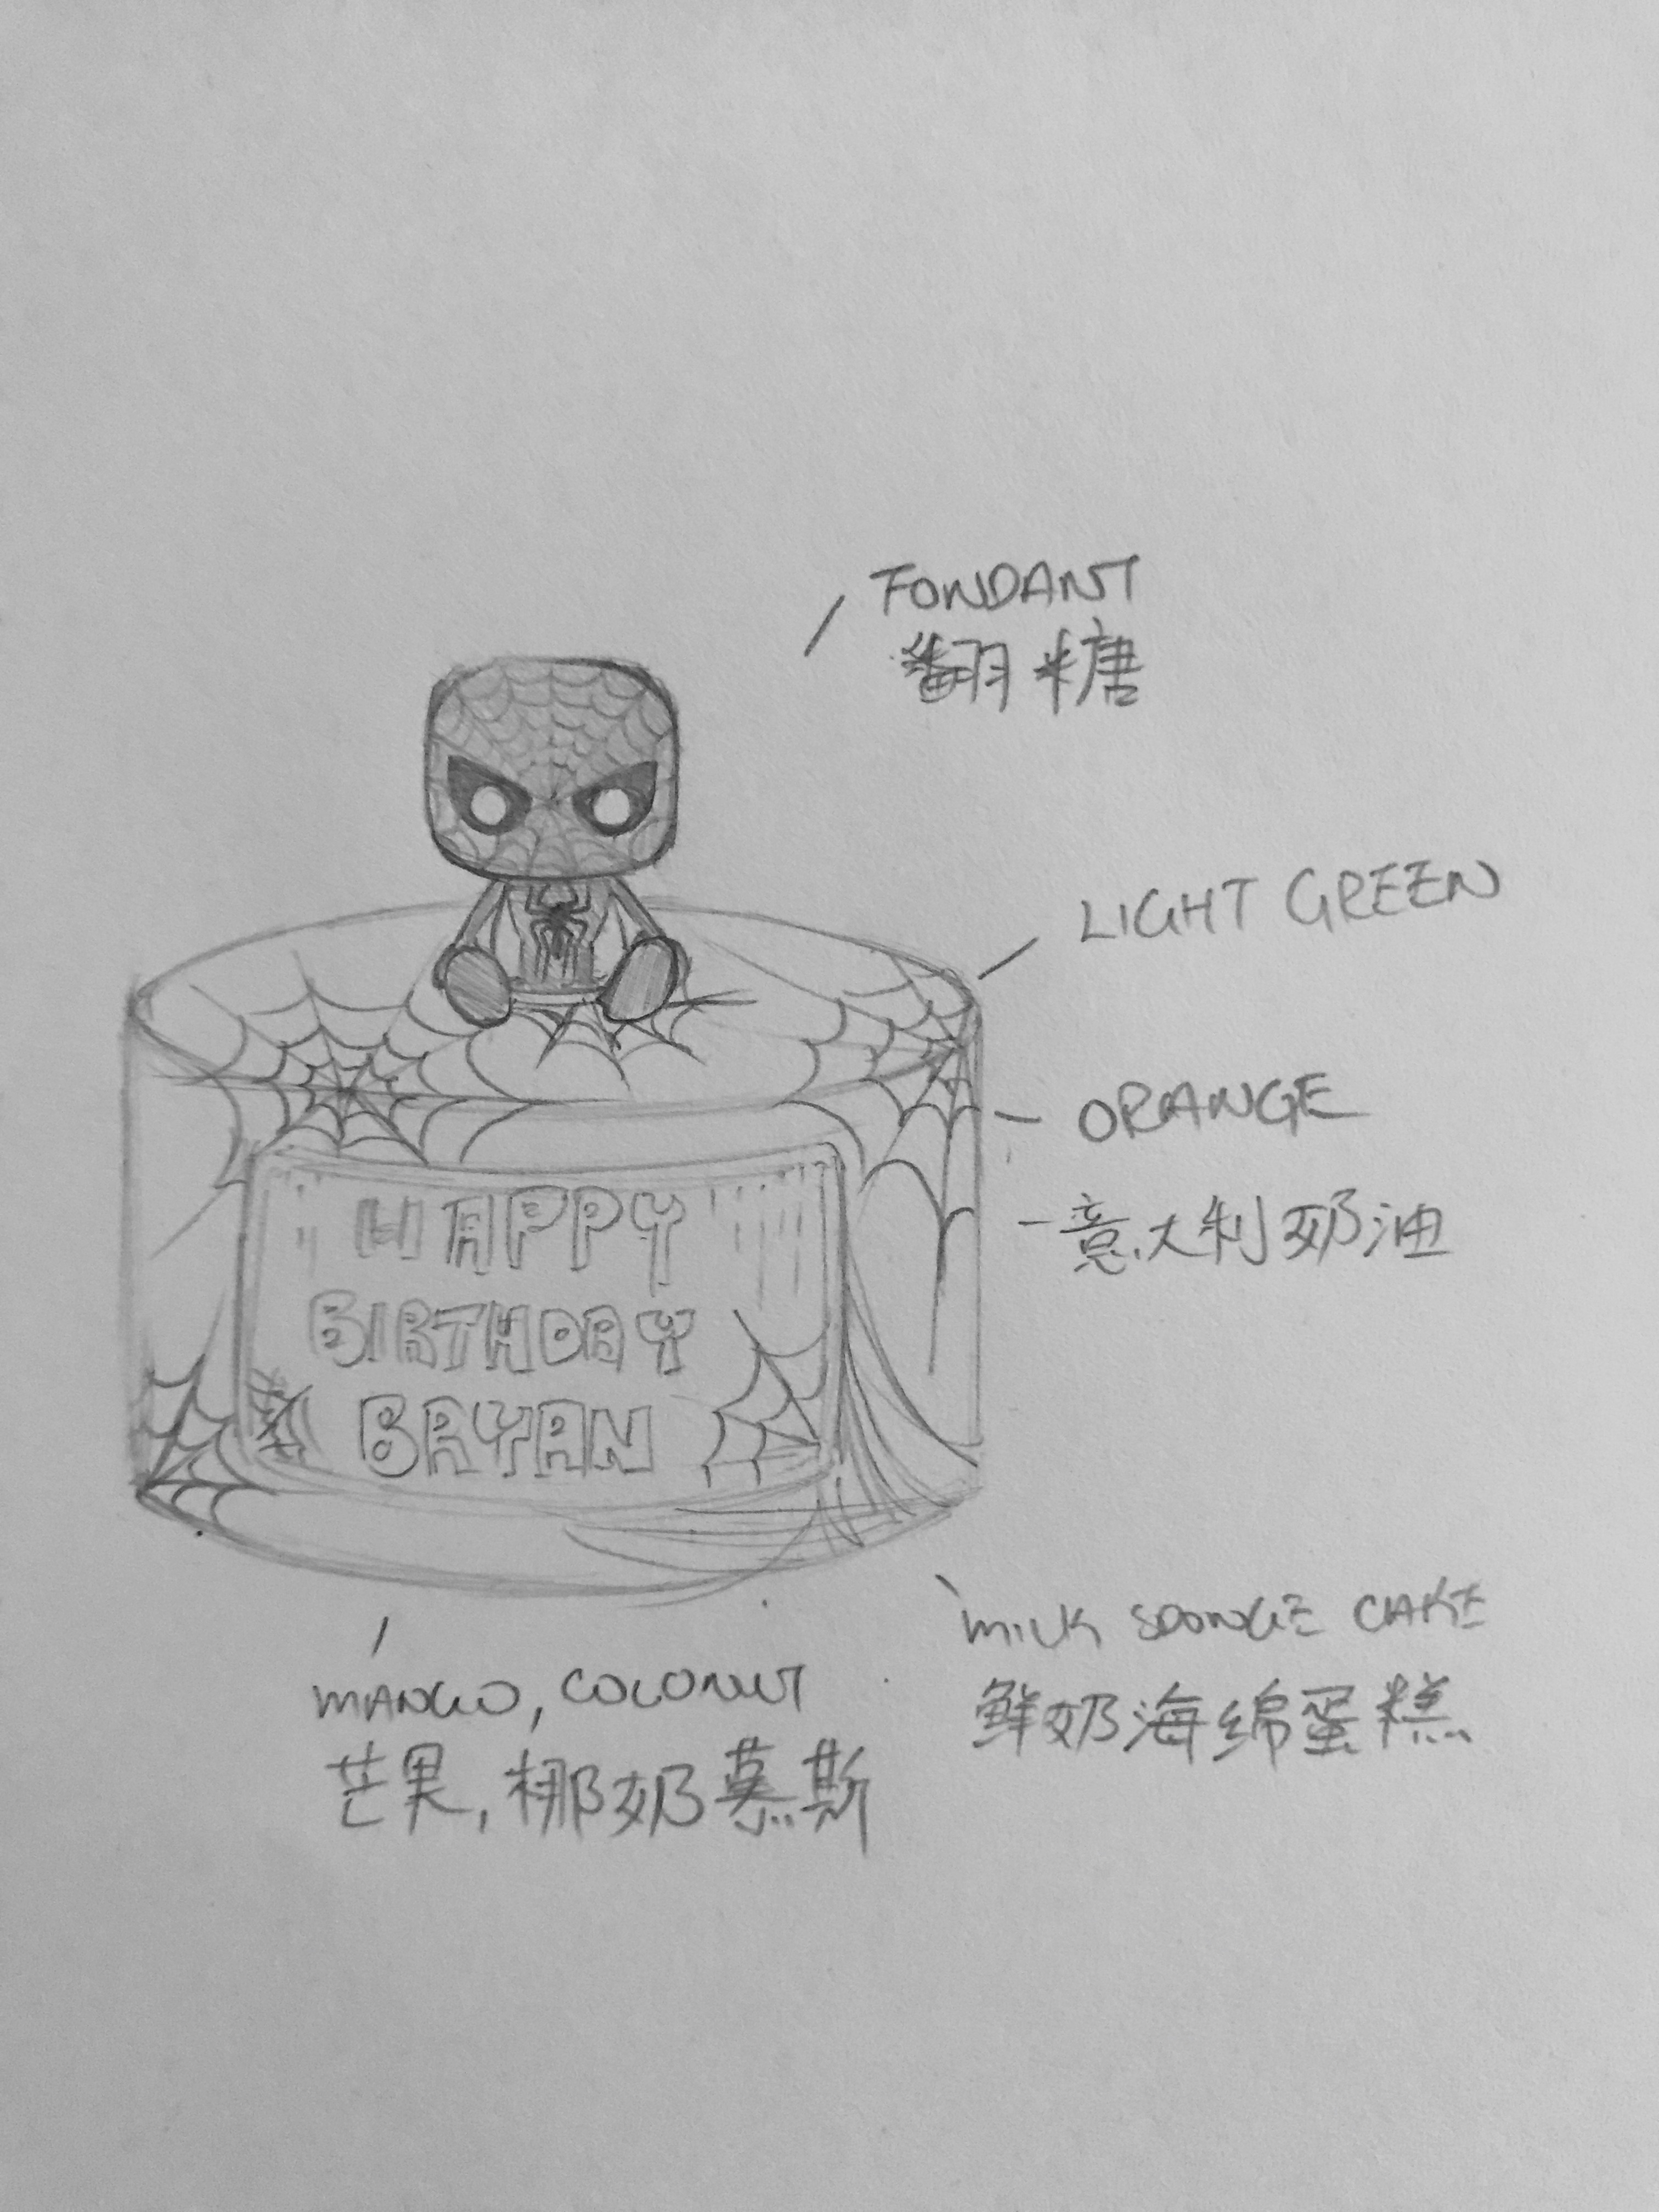 FONDANT
翻糖
LIGHT GREEN
ORANGE
意大利奶油
HAPPY
BIRTHDAY
BRYAN
MILK SPONGE CAKE
鲜奶海绵蛋糕
MANGO, COCONUT
芒果,椰奶慕斯